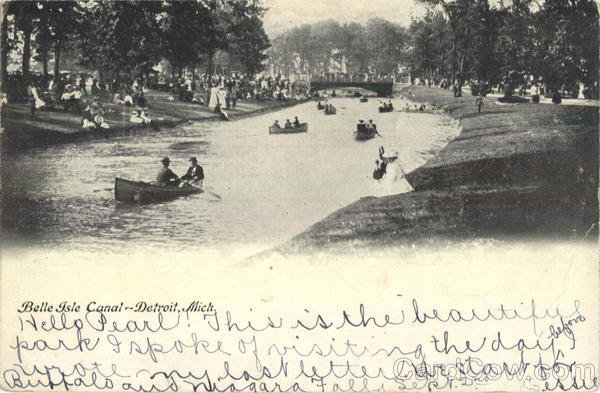 Belle Isle Canal--Detroit, Mich.
Hello Pearl! This is the beautiful
park I spoke of visiting the day before
I wrote my last letter. I start for
Buffalo and Niagara Falls Sept. 2nd
CardCow.com